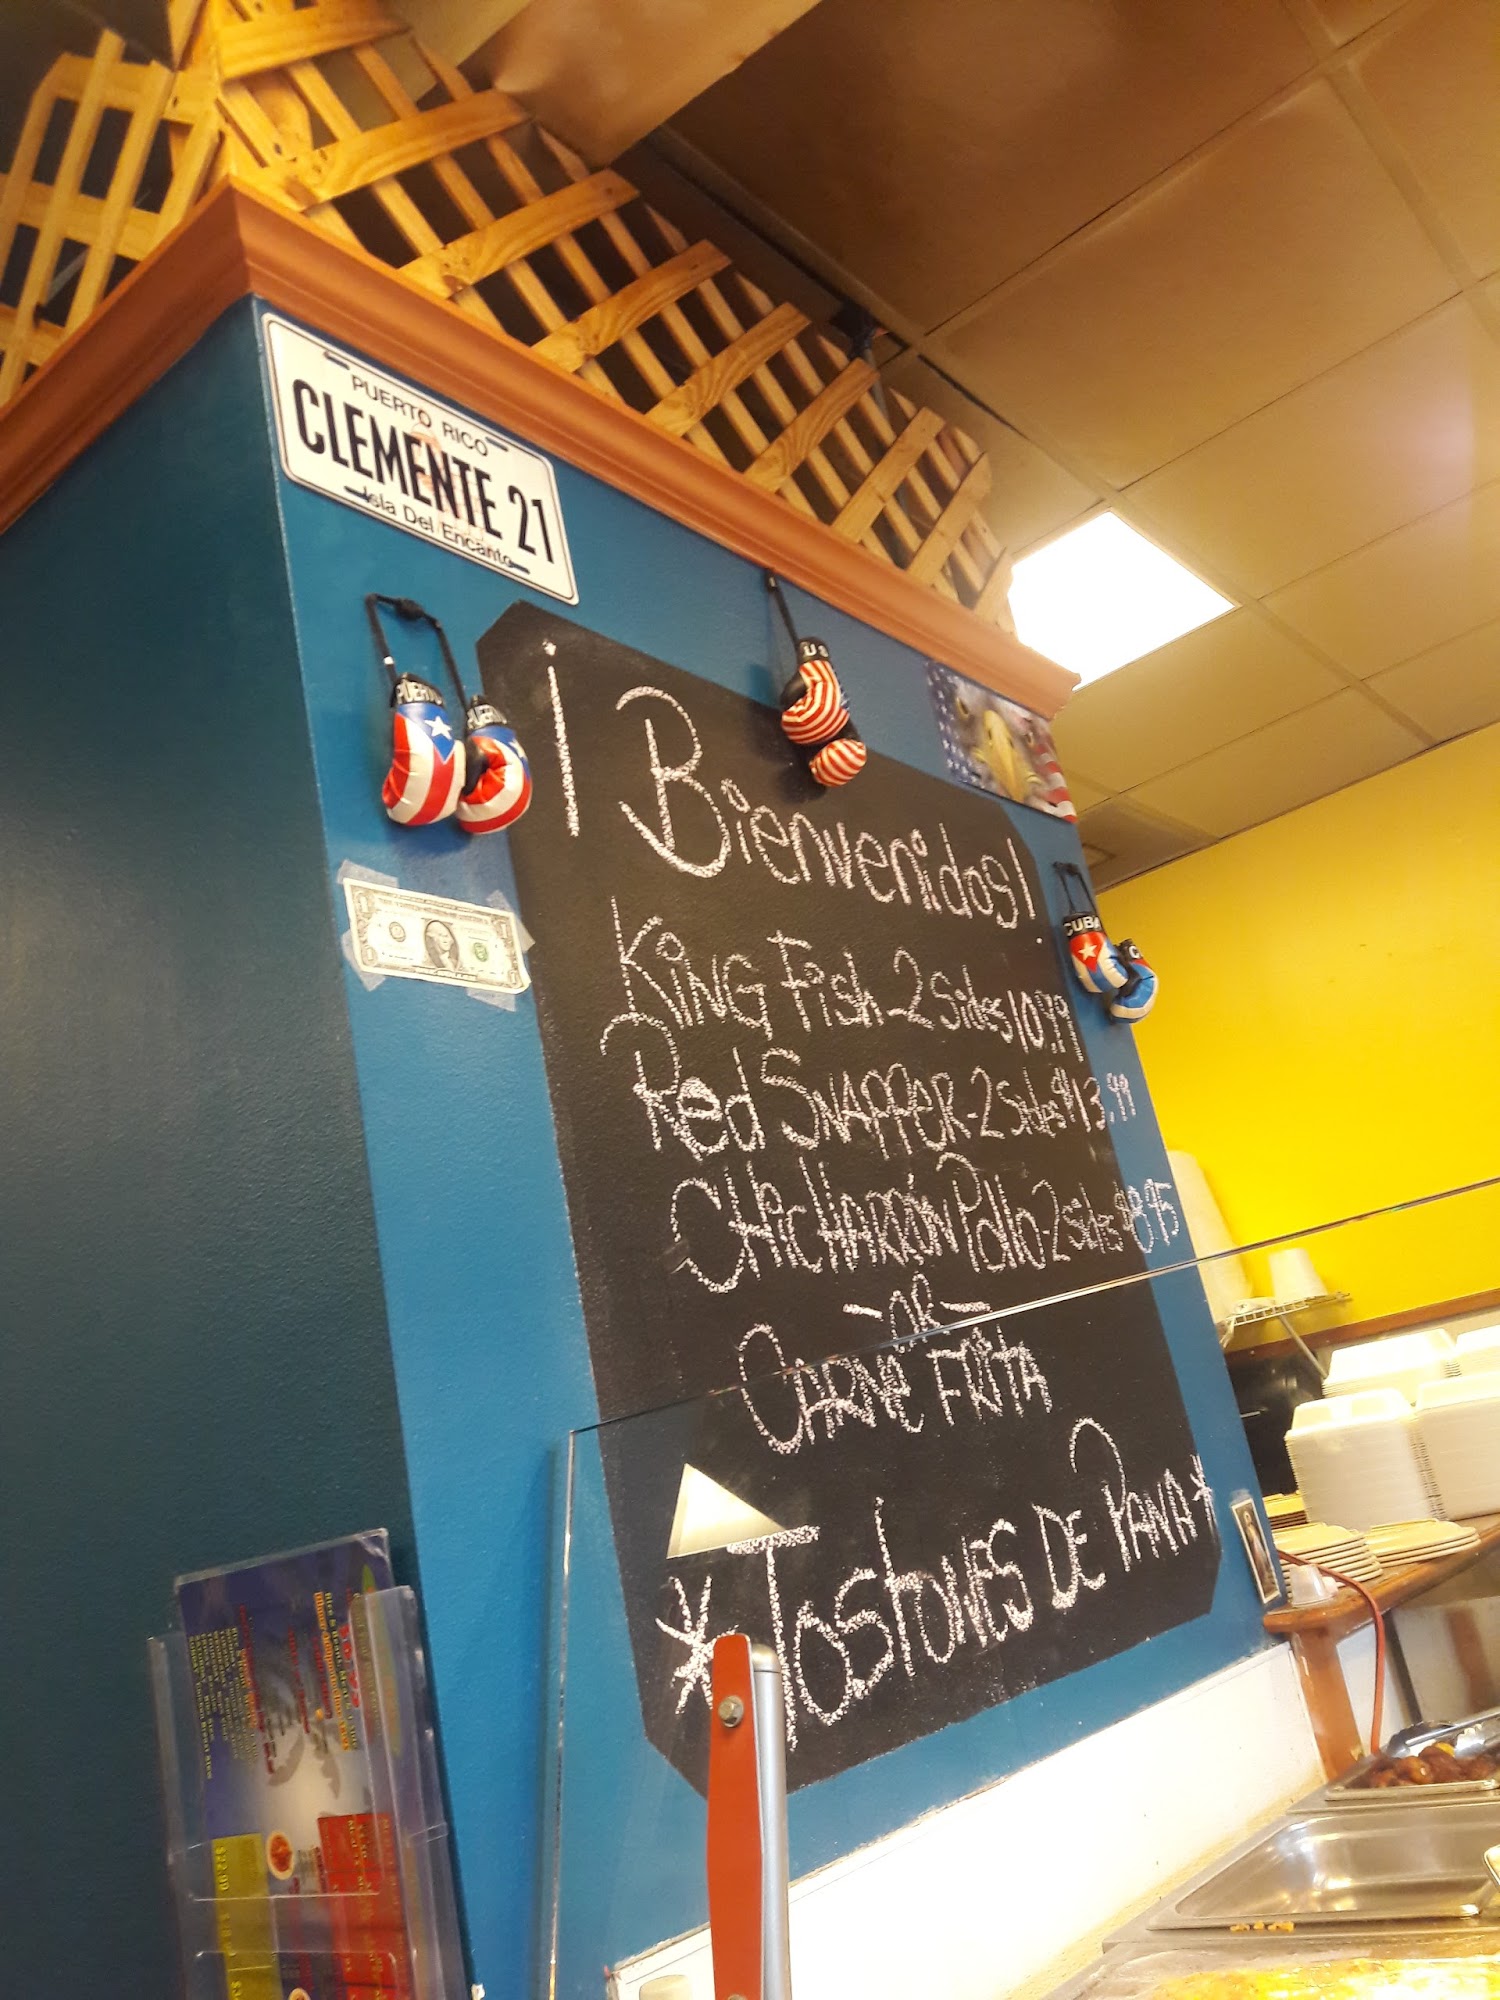 PUERTO RICO
CLEMENTE 21
Isla Del Encanto
PUERTO
PUERTO
US
CUBA
¡Bienvenidos!
KING Fish - 2 Sides 10.99
Red SNAPPER - 2 Sides $13.99
CHICHARRÓN Pollo - 2 Sides $8.95
- OR -
CARNE FRITA
* Tostones DE PANA *
$22.99